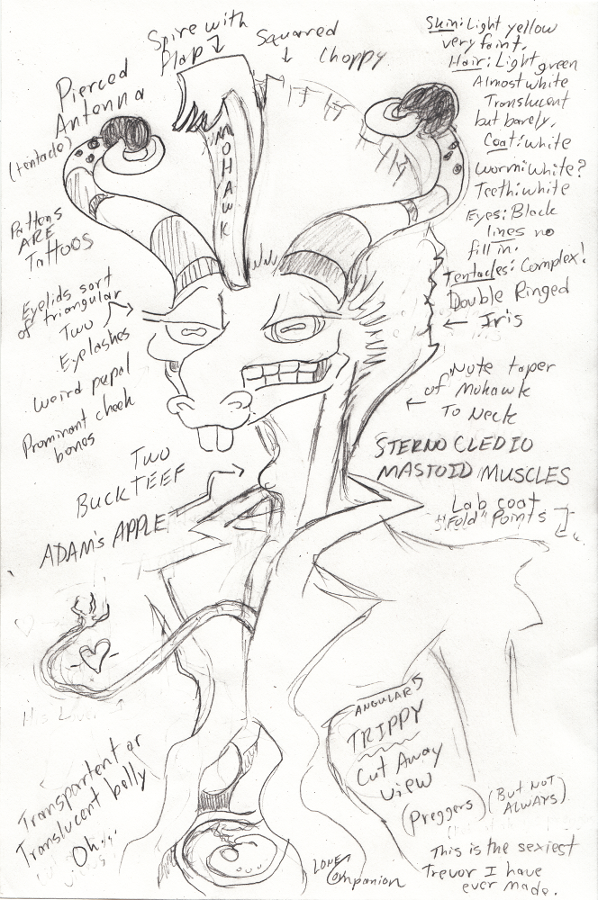 Spire with
Flap
Squared
Choppy
Pierced
Antenna
(tentacle)
MOHAWK
Skin: Light yellow
very faint.
Hair: Light green
Almost white
Translucent
but barely.
Coat: white
worm: white?
Teeth: white
Eyes: Black
lines no
fill in.
Tentacles: Complex!
Double Ringed
Iris
Pattens
ARE
TaTToos
Eyelids sort
of triangular
Two
Eyelashes
Weird pupal
Prominant cheek
bones
Note taper
of Mohawk
To Neck
STERNO CLEDIO
MASTOID MUSCLES
Two
BUCKTEEF
ADAMS APPLE
Lab coat
"Fold" Points
ANGULARS
TRIPPY
Cut Away
View
(Preggers) (But NOT
ALWAYS)
Transpartent or
Translucent belly
Oh...
LONE
Companion
This is the sexiest
Trevor I have
ever made.